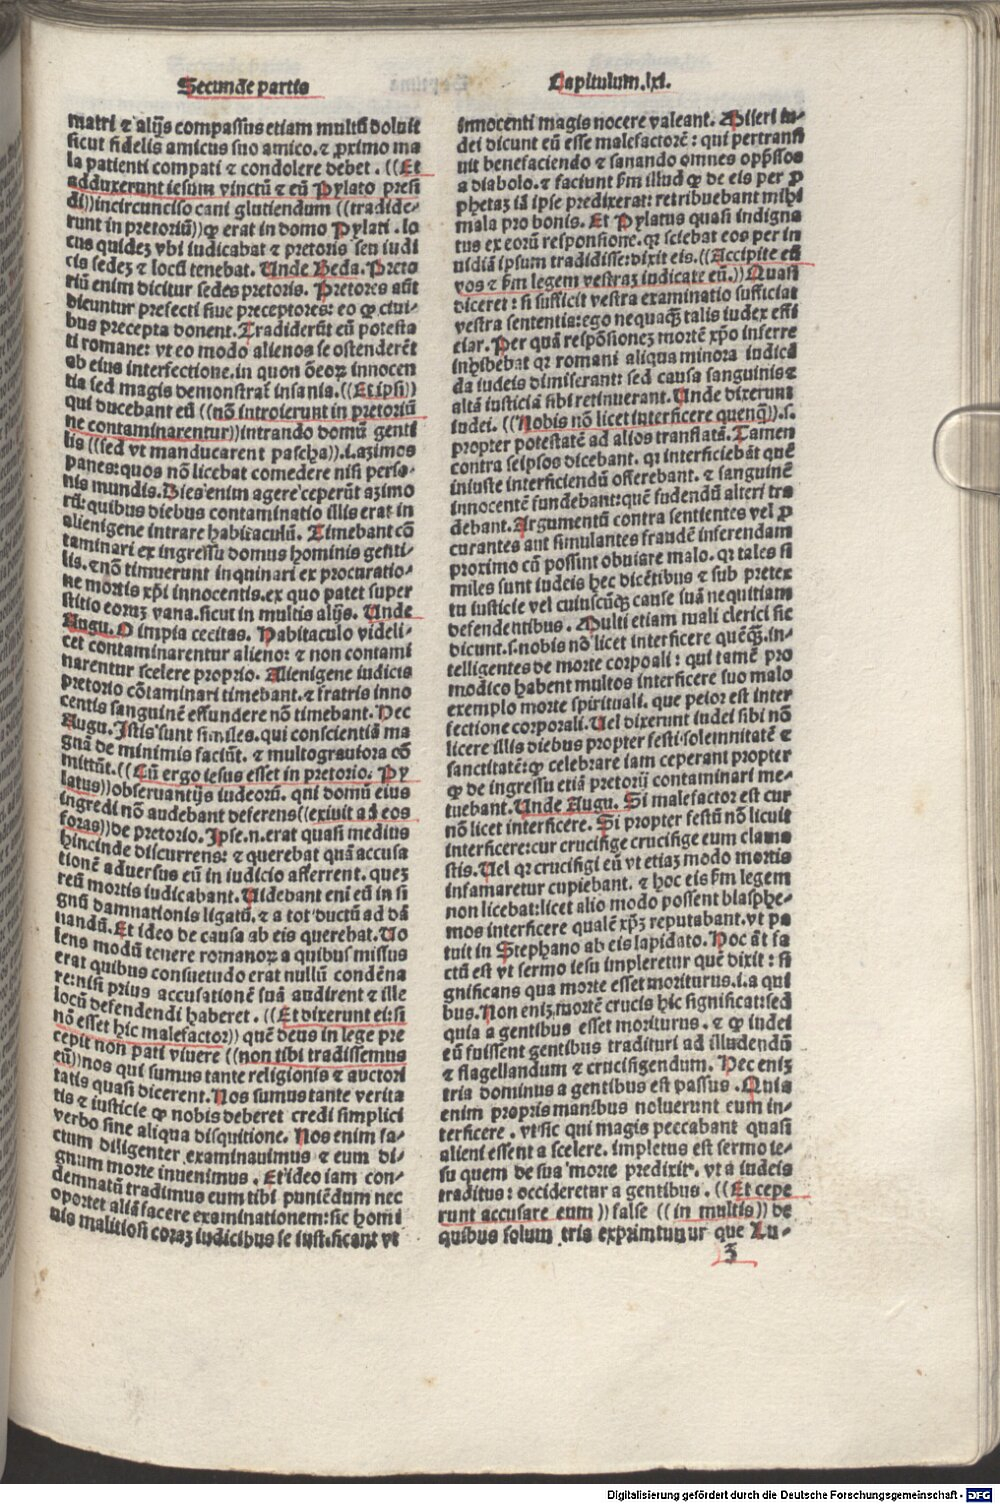 Secunde partis
Capitulum.lxi.
matri ⁊ alijs compassus etiam multū doluit
sicut fidelis amicus suo amico.⁊ proximo ma
la patienti compati ⁊ condolere debet . ((Et
adduxerunt iesum vinctū ⁊ eū Pylato presi
di))incircunciso cani glutiendum ((tradide⸗
runt in pretoriū))qꝫ erat in domo Pylati . lo
cus quidez vbi iudicabat ⁊ pretoris seu iudi
cis sedez ⁊ locū tenebat. Unde Beda. Preto
riū enim dicitur sedes pretoris. Pretores aūt
dicuntur prefecti siue preceptores: eo ꝙ ciui⸗
bus precepta donent. Tradiderūt eū potesta
ti romane: vt eo modo alienos se ostenderēt
ab eius interfectione.in quon ōeoꝝ innocen
tia sed magis demonstraƚ insania. ((Et ipsi))
qui ducebant eū ((nō introierunt in pretoriū
ne contaminarentur))intrando domū genti
lis ((sed vt manducarent pascha)).i.azimos
panes:quos nō licebat comedere nisi perso⸗
nis mundis. Dies enim agere ceperūt azimo
rū: quibus diebus contaminatio illis erat in
alienigene intrare habitaculū. Timebant cō
taminari ex ingressu domus hominis genti⸗
lis.⁊ nō timuerunt inquinari ex procuratio⸗
ne mortis xp̄i innocentis.ex quo patet super
stitio eoruz vana.sicut in multis alijs. Unde
Augu. O impia cecitas. Habitaculo videli⸗
cet contaminarentur alieno: ⁊ non contami
narentur scelere proprio. Alienigene iudicis
pretorio cōtaminari timebant.⁊ fratris inno
centis sanguinē effundere nō timebant. Hec
Augu. Istis sunt similes.qui conscientiā ma
gnā de minimis faciūt. ⁊ multograuiora cō
mittūt.((Cū ergo iesus esset in pretorio: Py
latus))obseruantijs iudeorū. qui domū eius
ingredi nō audebant deferens((exiuit ad eos
foras))de pretorio. Ipse.n.erat quasi medius
hincinde discurrens: ⁊ querebat quā accusa
tionē aduersus eū in iudicio afferrent. quez
reū mortis iudicabant. Uidebant eni eū in si
gnū damnationis ligatū.⁊ a tot ductū ad dā
nandū. Et ideo de causa ab eis querebat. Uo
lens modū tenere romanoꝝ a quibus missus
erat quibus consuetudo erat nullū condēna
re:nisi prius accusationē suā audirent ⁊ ille
locū defendendi haberet . ((Et dixerunt ei:si
nō esset hic malefactor)) quē deus in lege pre
cepit non pati viuere ((non tibi tradissemus
eū))nos qui sumus tante religionis ⁊ auctori
tatis quasi dicerent. Nos sumus tante verita
tis ⁊ iusticie ꝙ nobis deberet credi simplici
verbo sine aliqua disquitione. Nos enim fa⸗
ctum diligenter examinauimus ⁊ eum di⸗
gnum morte inuenimus . Et ideo iam con⸗
demnatū tradimus eum tibi puniēdum nec
oportet aliā facere examinationem:sic homi
nis malitiosi coraz iudicibus se iustificant vt
innocenti magis nocere valeant. Miseri iu⸗
dei dicunt eū esse malefactorē : qui pertransi
uit benefaciendo ⁊ sanando omnes opp̄ssos
a diabolo.⁊ faciunt ẜm illud ꝙ de eis per p̄
phetaz iā ipse predixerat: retribuebant mihi
mala pro bonis. Et Pylatus quasi indigna
tus ex eorū responsione. qꝛ sciebat eos per in
uidiā ipsum tradidisse:dixit eis. ((Accipite eū
vos ⁊ ẜm legem vestraz iudicate eū.))Quasi
diceret : si sufficit vestra examinatio sufficiat
vestra sententia:ego nequaꝗ̄ talis iudex effi
ciar. Per quā respōsionez mortē xp̄o inferre
inhibebat qꝛ romani aliqua minora iudicā
da iudeis dimiserant: sed causa sanguinis ⁊
altā iusticiā sibi retinuerant. Unde dixerunt
iudei. ((Nobis nō licet interficere quenꝗ̄)).s.
propter potestatē ad alios translatā. Tamen
contra seipsos dicebant. qꝛ interficiebāt quē
iniuste interficiendū offerebant. ⁊ sanguinē
innocentē fundebant:quē fudendū alteri tra
debant. Argumentū contra sentientes vel p̄
curantes aut simulantes fraudē inferendam
proximo cū possint obuiare malo. qꝛ tales si
miles sunt iudeis hec dicētibus ⁊ sub pretex
tu iusticie vel cuiuscūqꝫ cause suā nequitiam
defendentibus . Multi etiam mali clerici sic
dicunt.s.nobis nō licet interficere quēꝗ̄.in⸗
telligentes de morte corpoali : qui tamē pro
modico habent multos interficere suo malo
exemplo morte spirituali. que peior est inter
fectione corporali. Uel dixerunt iudei sibi nō
licere illis diebus propter festi solemnitatē ⁊
sanctitatē:ꝙ celebrare iam ceperant propter
ꝙ de ingressu etiā pretorij contaminari me⸗
tuebant. Unde Augu. Si malefactor est cur
nō licet interficere. Si propter festū nō licuit
interficere:cur crucifige crucifige eum clama
stis. Uel qꝛ crucifigi eū vt etiaz modo mortis
infamaretur cupiebant. ⁊ hoc eis ẜm legem
non licebat:licet alio modo possent blasphe⸗
mos interficere qualē xp̄z reputabant.vt pa
tuit in Stephano ab eis lapidato. Hoc āt fa
ctū est vt sermo iesu impleretur quē dixit : si
gnificans qua morte esset moriturus.i.a qui
bus. Non eniz mortē crucis hic significat:sed
quia a gentibus esset moriturus . ⁊ ꝙ iudei
eū fuissent gentibus tradituri ad illudendū
⁊ flagellandum ⁊ crucifigendum. Hec eniz
tria dominus a gentibus est passus . Quia
enim proprijs manibus noluerunt eum in⸗
terficere . vt sic qui magis peccabant quasi
alieni essent a scelere. impletus est sermo ie⸗
su quem de sua morte predixit. vt a iudeis
traditus : occideretur a gentibus . ((Et cepe
runt accusare eum )) false (( in multis)) de
quibus solum tria exprimuntur que Lu⸗
3
Digitalisierung gefördert durch die Deutsche Forschungsgemeinschaft - DFG